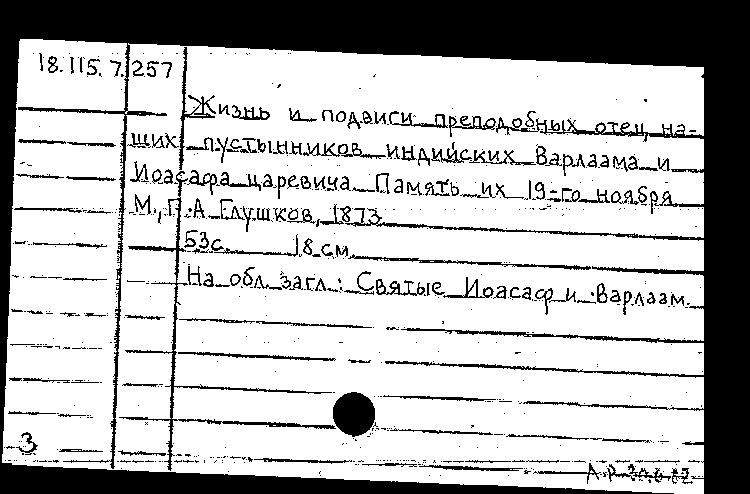 18.115.7.257
Жизнь и подвиги преподобных отец на-
ших пустынников индийских Варлаама и
Иоасафа царевича. Память их 19-го ноября
М., П.А Глушков, 1873
53с. 18 см.
На обл. загл.: Святые Иоасаф и Варлаам.
3
А.Р.